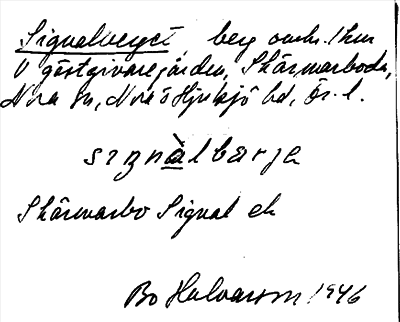 Signalberget, berg omkr. 1 km
V gästgivaregården, Skärmarboda,
Nora sn, Nora o Hjulsjö bd, Ör. l.
Skärmarbo Signal ek
Bo Halvarson 1946